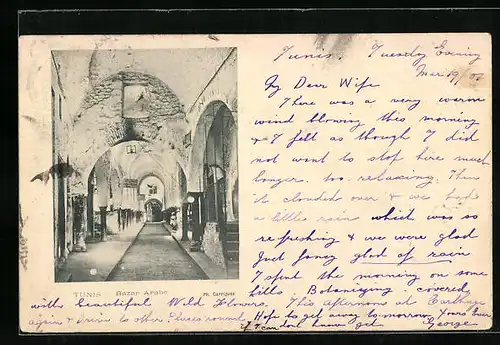 Tunis, Tuesday Evening
Mar 19/07
My Dear Wife
There was a very warm
wind blowing this morning
& I felt as though I did
not want to stop here much
longer, too relaxing. Then
it clouded over & we had
a little rain which was so
refreshing & we were glad
Just fancy glad of rain
I spent the morning on some
hills Botanizing - covered
with beautiful Wild flowers. This afternoon at Carthage
again & drive to other places round. Hope to get away to morrow
if I can don't know yet
Yours ever
George
TUNIS Bazar Arabe
PH. GARRIGUES